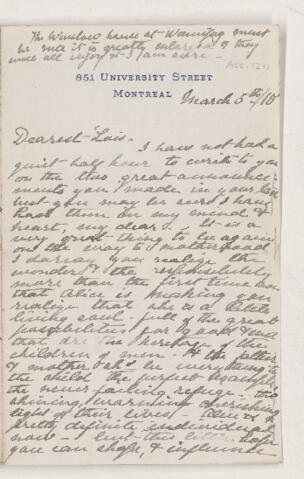 The Winslow house at Winnipeg must
be nice it is greatly enlarged & they
will all enjoy it I am sure -
851 UNIVERSITY STREET
MONTREAL
March 5th/15
Dearest Lois -
I have not had a
quiet half hour to write to you
on the two great announce-
ments you made in your
but you may be sure I have
had them on my mind &
heart, my dear. It is a
very great thing to be again
on the way to Motherhood
I daresay you realize the
wonder & the responsibility
more than the first time now
that Alice is making you
realize that she is a little
living soul - full of the great
possibilities for good & evil
that are the heritage of the
children of men. If the father
& mother be everything to
the child the perfect example
the never failing refuge - the
shining, warming cherishing
light of their lives - Alice is a
pretty definite individual
now - but this little
you can shape, & influence